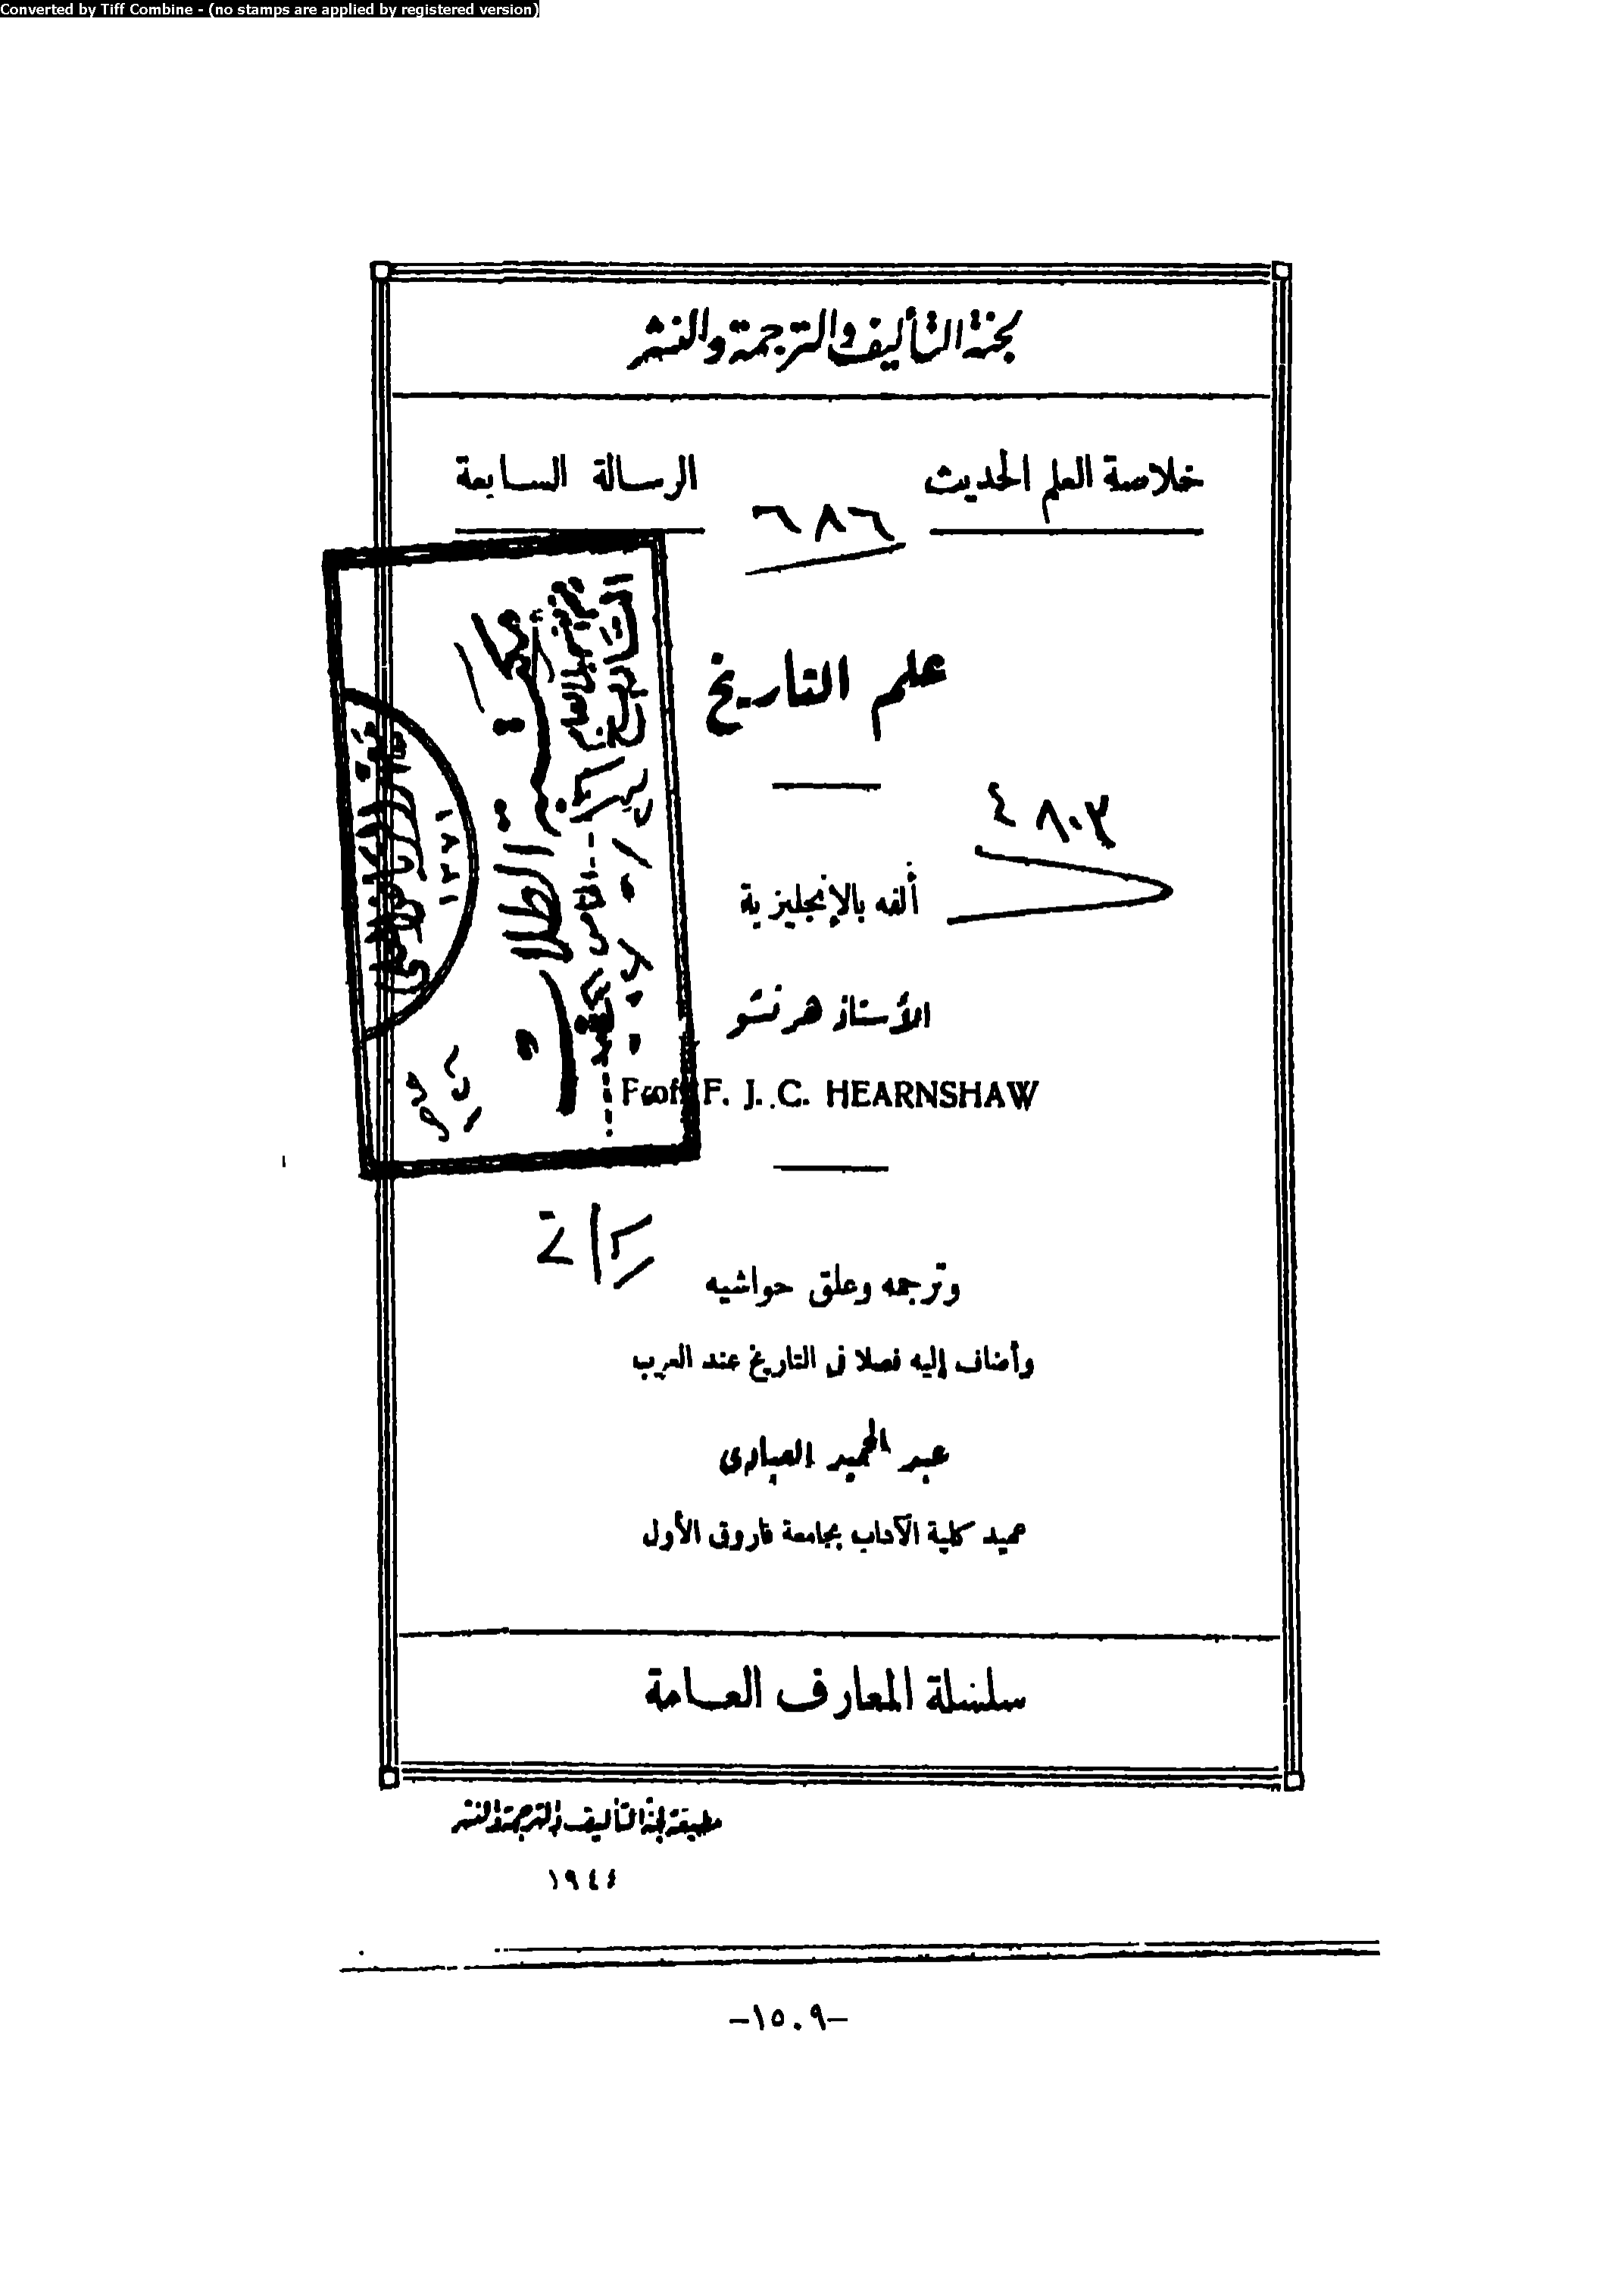 Converted by Tiff Combine - (no stamps are applied by registered version)
لجنة التأليف والترجمة والنشر
خلاصة العلم الحديث الرسالة السابعة
٦٨٦
علم التاريخ
٤٨٠٣
ألفه بالإنجليزية
الأستاذ هرنشو
Prof. F. J. C. HEARNSHAW
وترجمه وعلق حواشيه
وأضاف إليه فصلا فى التاريخ عند العرب
عبد الحميد العبادى
عميد كلية الآداب بجامعة فاروق الأول
سلسلة المعارف العامة
مطبعة لجنة التأليف والترجمة والنشر
١٩٤٤
-١٥٠٩-